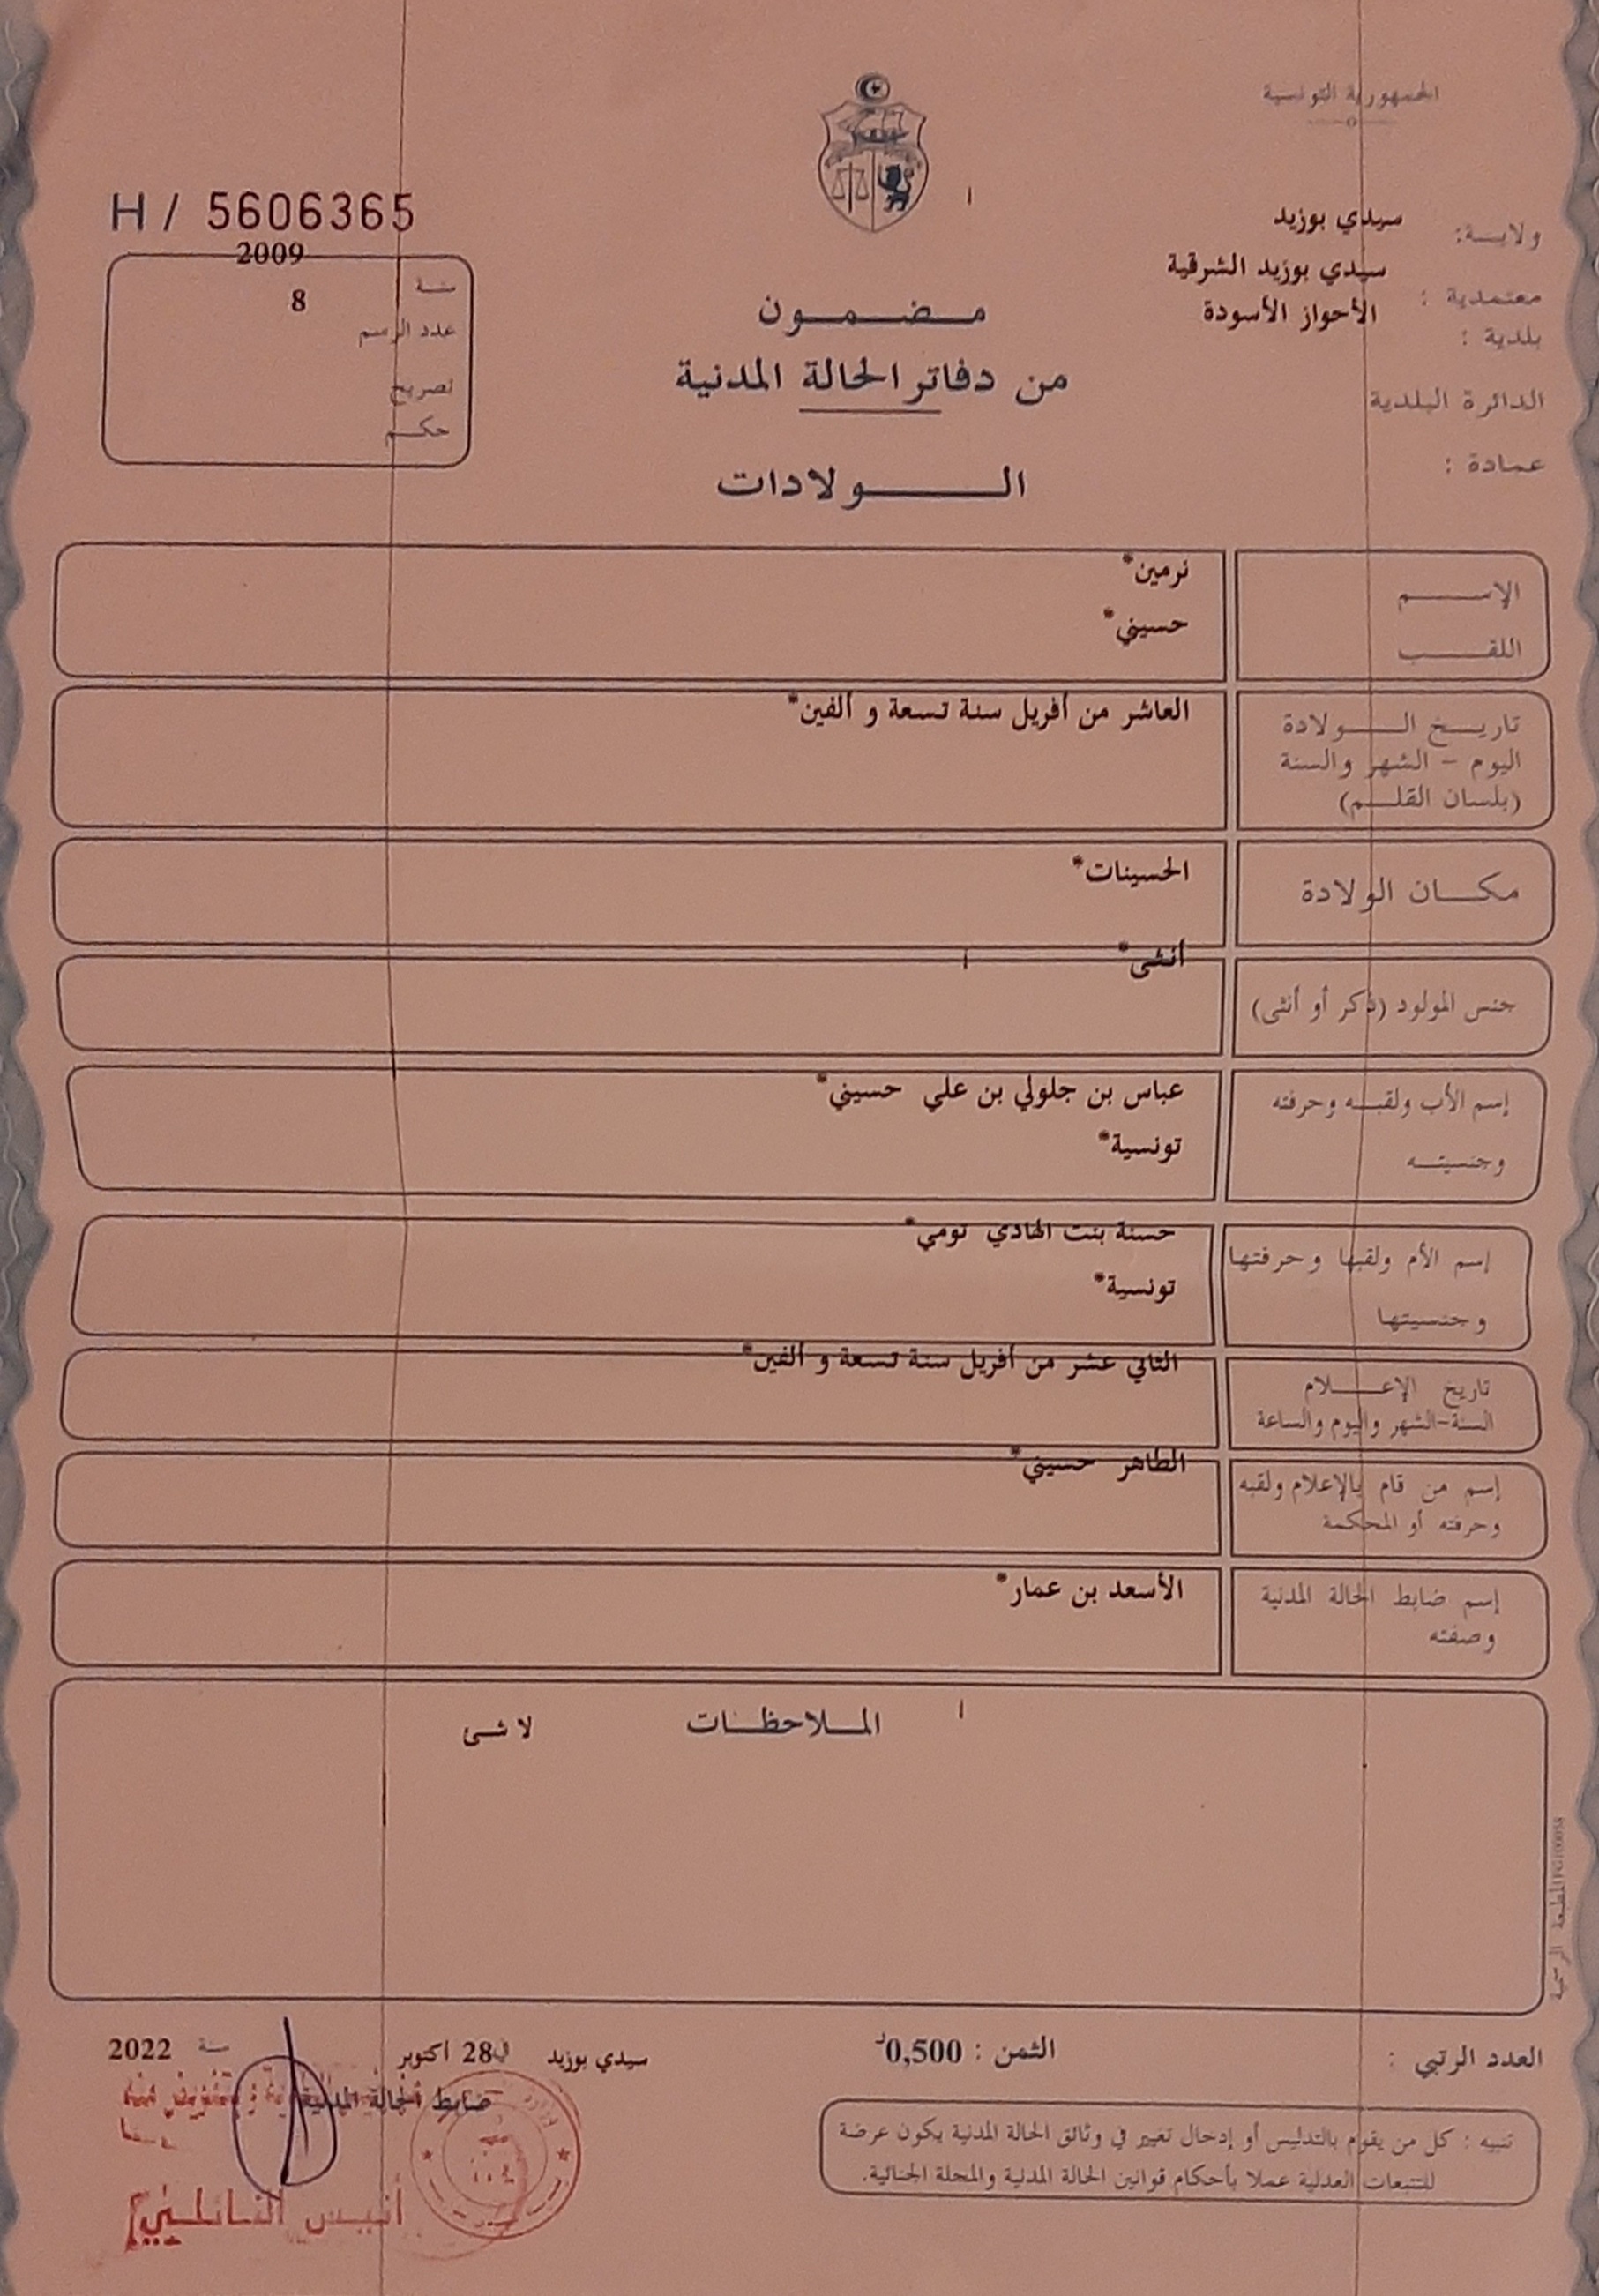 الجمهورية التونسية
H / 5606365
ولايـــة: سيدي بوزيد
معتمدية : سيدي بوزيد الشرقية
بلدية : الأحواز الأسودة
الدائرة البلدية
عمادة :
2009
سنـة
8
عدد الرسم
تصريح
حكـم
مـضـمـون
من دفاتر الحالة المدنية
الـولادات
الإسـم نرمين*
اللقـب حسيني*
تاريـخ الـولادة العاشر من أفريل سنة تسعة و ألفين*
اليوم - الشهر والسنة
(بلسان القلـم)
مكـان الولادة الحسينات*
جنس المولود (ذكر أو أنثى) أنثى*
إسم الأب ولقبـه وحرفته عباس بن جلولي بن علي حسيني*
وجنسيتـه تونسية*
إسم الأم ولقبها وحرفتها حسنة بنت الهادي نومي*
وجنسيتها تونسية*
تاريخ الإعـلام الثاني عشر من أفريل سنة تسعة و ألفين*
السنة-الشهر واليوم والساعة
إسم من قام بالإعلام ولقبه الطاهر حسيني*
وحرفته أو المحكمة
إسم ضابط الحالة المدنية الأسعد بن عمار*
وصفته
الملاحظات لا شئ
المطبعة الرسمية
العدد الرتبي :
الثمن : 0,500د
سيدي بوزيد 28 اكتوبر سنة 2022
ضابط الحالة المدنية
تنبيه : كل من يقوم بالتدليس أو إدخال تغيير في وثائق الحالة المدنية يكون عرضة
للتتبعات العدلية عملا بأحكام قوانين الحالة المدنية والمجلة الجنائية.
أنيس النائلي